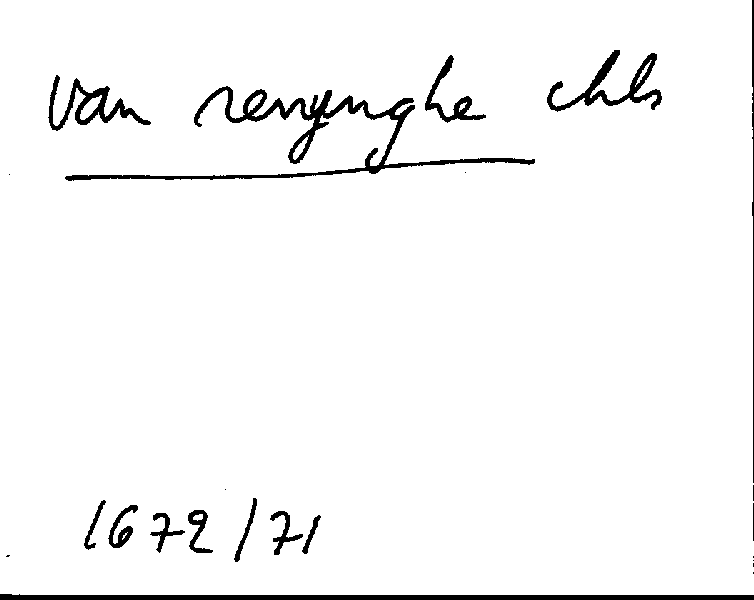 van renynghe chls
1672/71